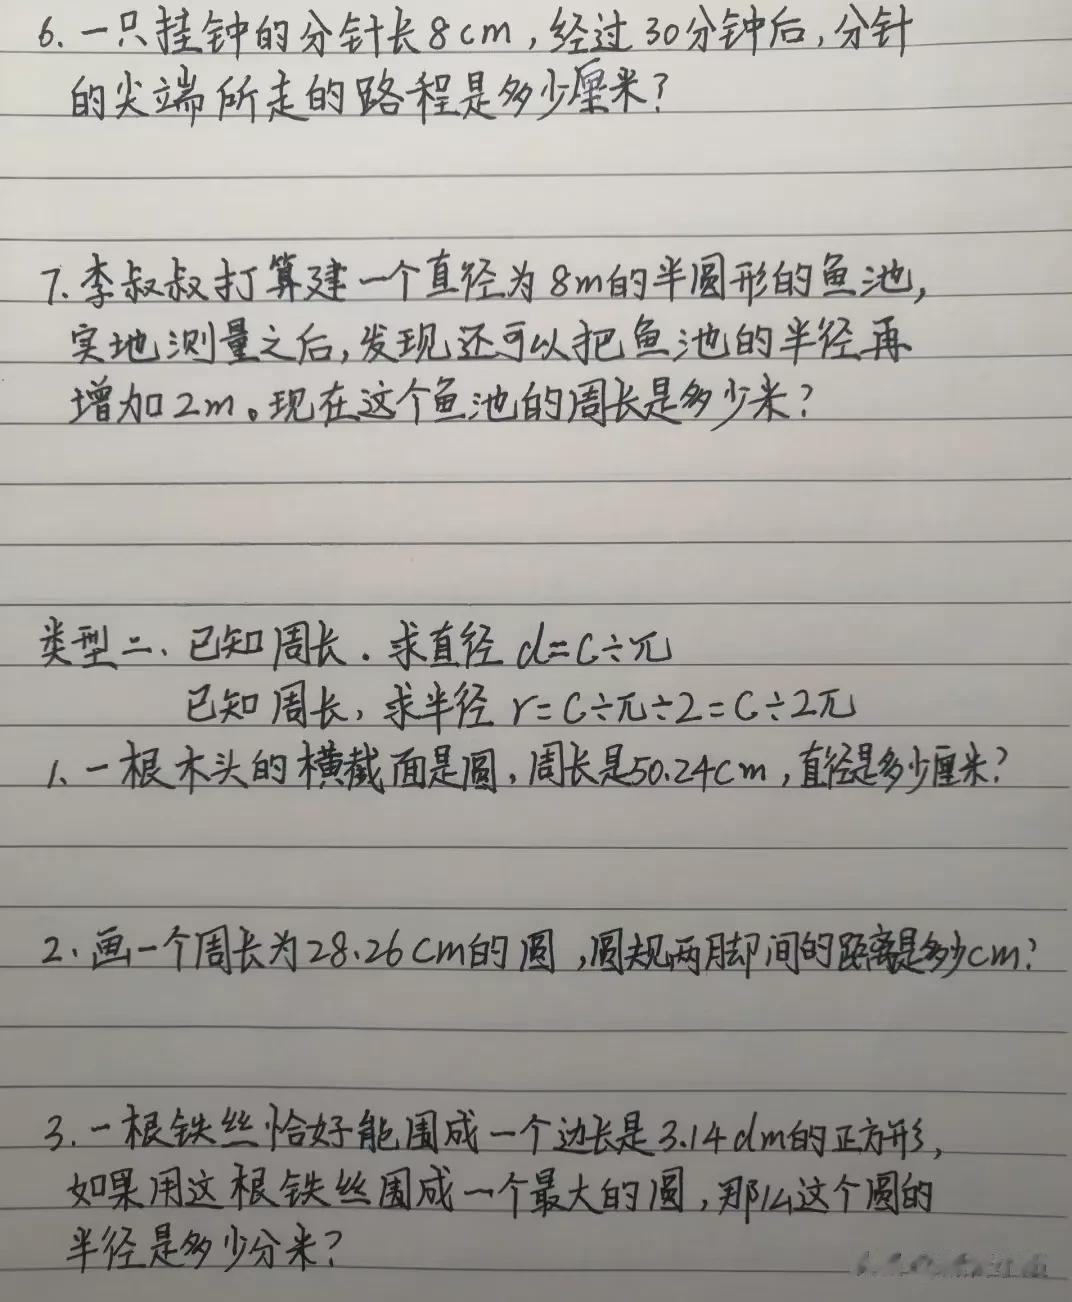 6. 一只挂钟的分针长8cm，经过30分钟后，分针
的尖端所走的路程是多少厘米？
7. 李叔叔打算建一个直径为8m的半圆形的鱼池，
实地测量之后，发现还可以把鱼池的半径再
增加2m。现在这个鱼池的周长是多少米？
类型二、已知周长．求直径 d=C÷π
已知周长，求半径 r=C÷π÷2=C÷2π
1. 一根木头的横截面是圆，周长是50.24cm，直径是多少厘米？
2. 画一个周长为28.26cm的圆，圆规两脚间的距离是多少cm？
3. 一根铁丝恰好能围成一个边长是3.14dm的正方形，
如果用这根铁丝围成一个最大的圆，那么这个圆的
半径是多少分米？